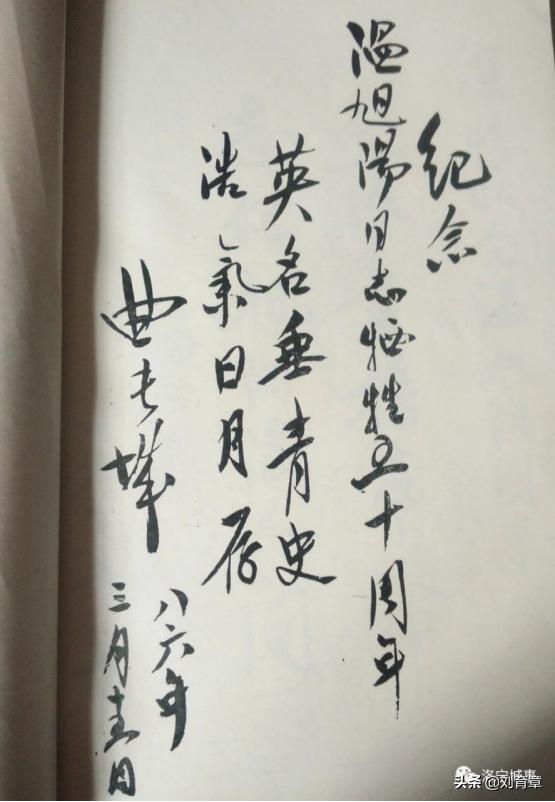 纪念
温旭陽同志牺牲五十周年
英名垂青史
浩氣日月存
曲
八六年
三月日
洛宁城事
头条 @刘育章